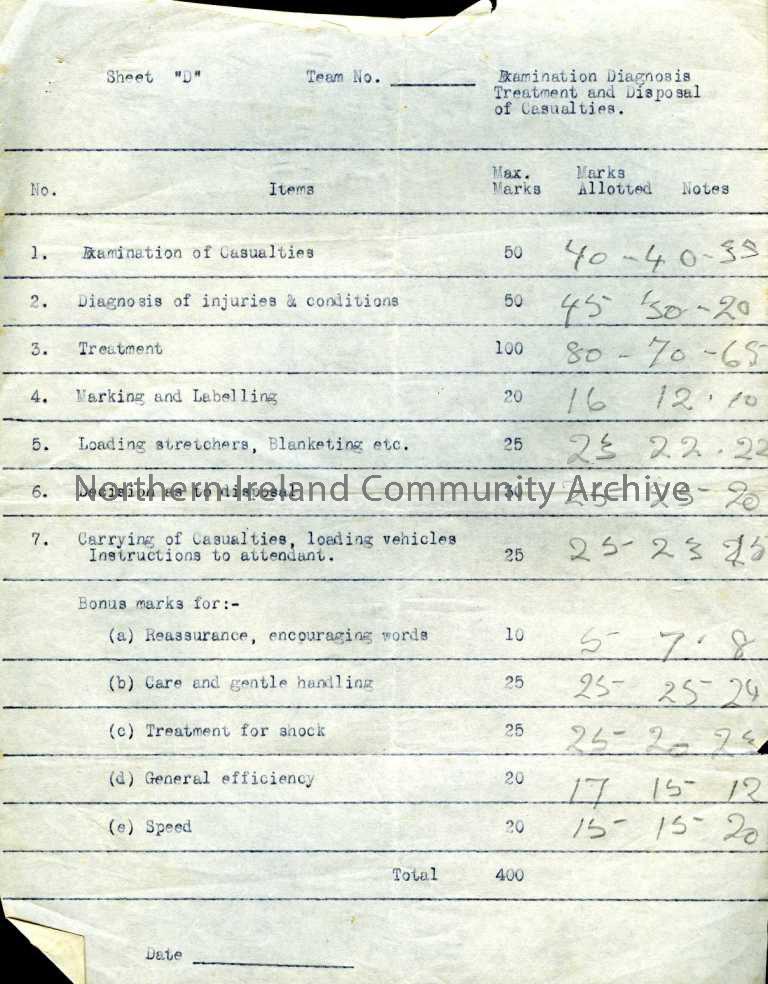 Sheet "D" Team No. ________ Examination Diagnosis
Treatment and Disposal
of Casualties.
Max. Marks
No. Items Marks Allotted Notes
1. Examination of Casualties 50 40 - 40 - 35
2. Diagnosis of injuries & conditions 50 45 50 - 20
3. Treatment 100 80 - 70 - 65
4. Marking and Labelling 20 16 12 · 10
5. Loading stretchers, Blanketing etc. 25 23 22 · 22
6. Decision as to disposal 30 25 25 20
Northern Ireland Community Archive
7. Carrying of Casualties, loading vehicles
Instructions to attendant. 25 25 23 25
Bonus marks for:-
(a) Reassurance, encouraging words 10 5 7 · 8
(b) Care and gentle handling 25 25 25 24
(c) Treatment for shock 25 25 20
(d) General efficiency 20 17 15 12
(e) Speed 20 15 15 20
Total 400
Date ________